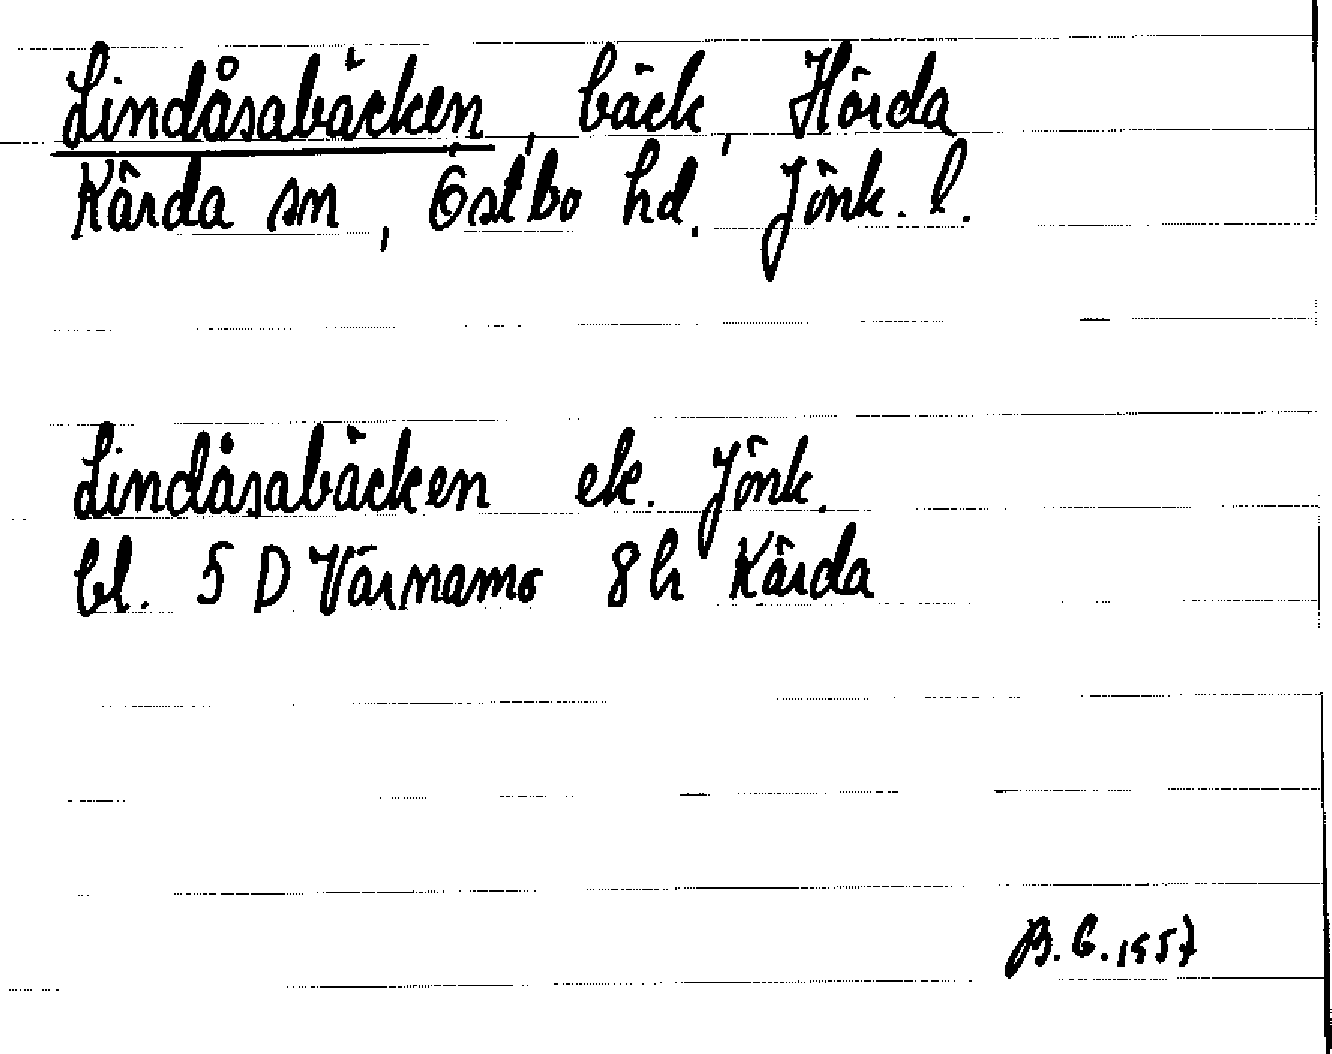 Lindåsabäcken, bäck, Hörda
Kärda sn, Östbo hd. Jönk. l.
Lindåsabäcken ek. Jönk.
bl. 5 D Värnamo 8 h Kärda
B. G. 1957